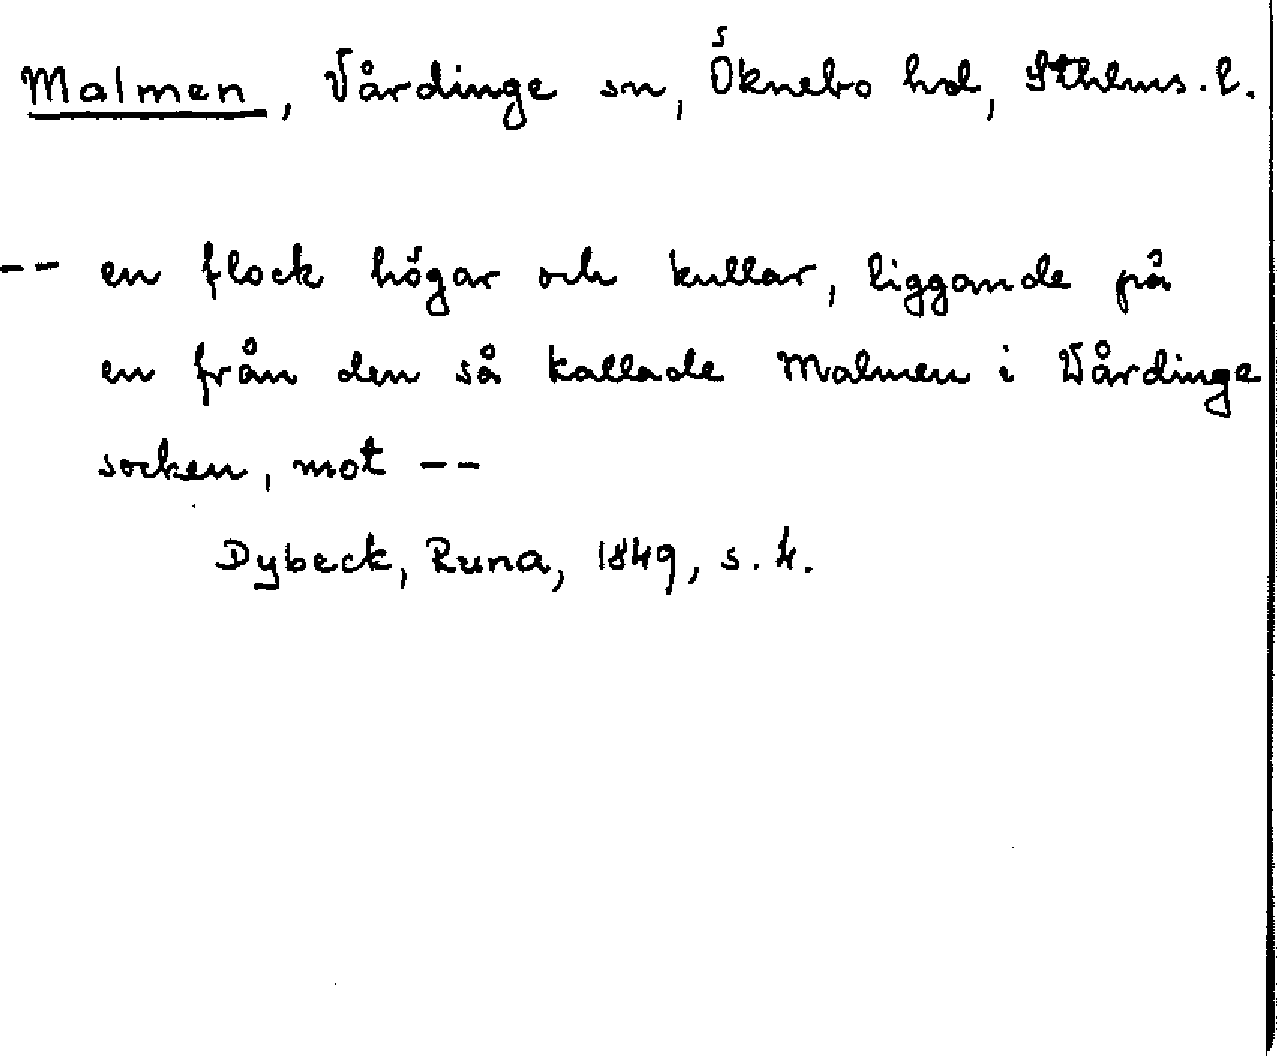 Malmen, Vårdinge sn, Öknebo hd, Sthlms. l.
-- en flock högar och kullar, liggande på
en från den så kallade Malmen i Vårdinge
socken, mot --
Dybeck, Runa, 1849, s. 4.